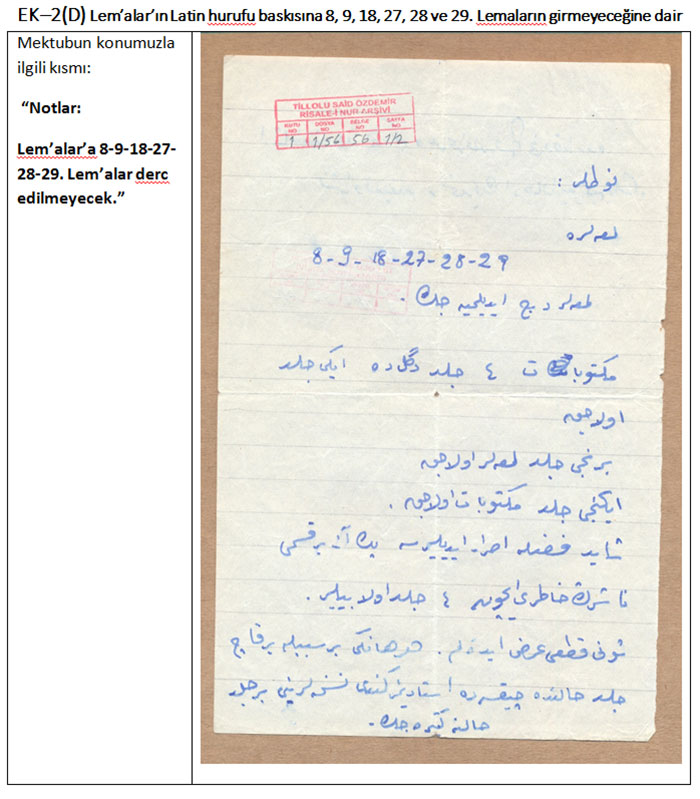 EK–2(D) Lem’alar’ın Latin hurufu baskısına 8, 9, 18, 27, 28 ve 29. Lemaların girmeyeceğine dair
Mektubun konumuzla
ilgili kısmı:
“Notlar:
Lem’alar’a 8-9-18-27-
28-29. Lem’alar derc
edilmeyecek.”
TİLLOLU SAİD ÖZDEMİR
RİSALE-İ NUR ARŞİVİ
KUTU NO DOSYA NO BELGE NO SAYFA NO
1 1/56 56 1/2
نوطلر :
لمعه لره
8-9-18-27-28-29
لمعه لر درج ايديلميه جك .
مكتوبات ٤ جلد دگل ده ايكى جلد
اولاجق
برنجى جلد لمعه لر اولاجق
ايكنجى جلد مكتوبات اولاجق .
شايد فضله اصرار ايديليرسه بك آز بر قسمى
ناشرك خاطرى ايچون ٤ جلد اولابيلير .
شونى قطعى عرض ايده لم . هر هانكى بر سببله بر قاچ
جلد حالنده چيقسه ده استاديمز كندى نسخه لرينى بر جلد
حالنه كتيره جك .